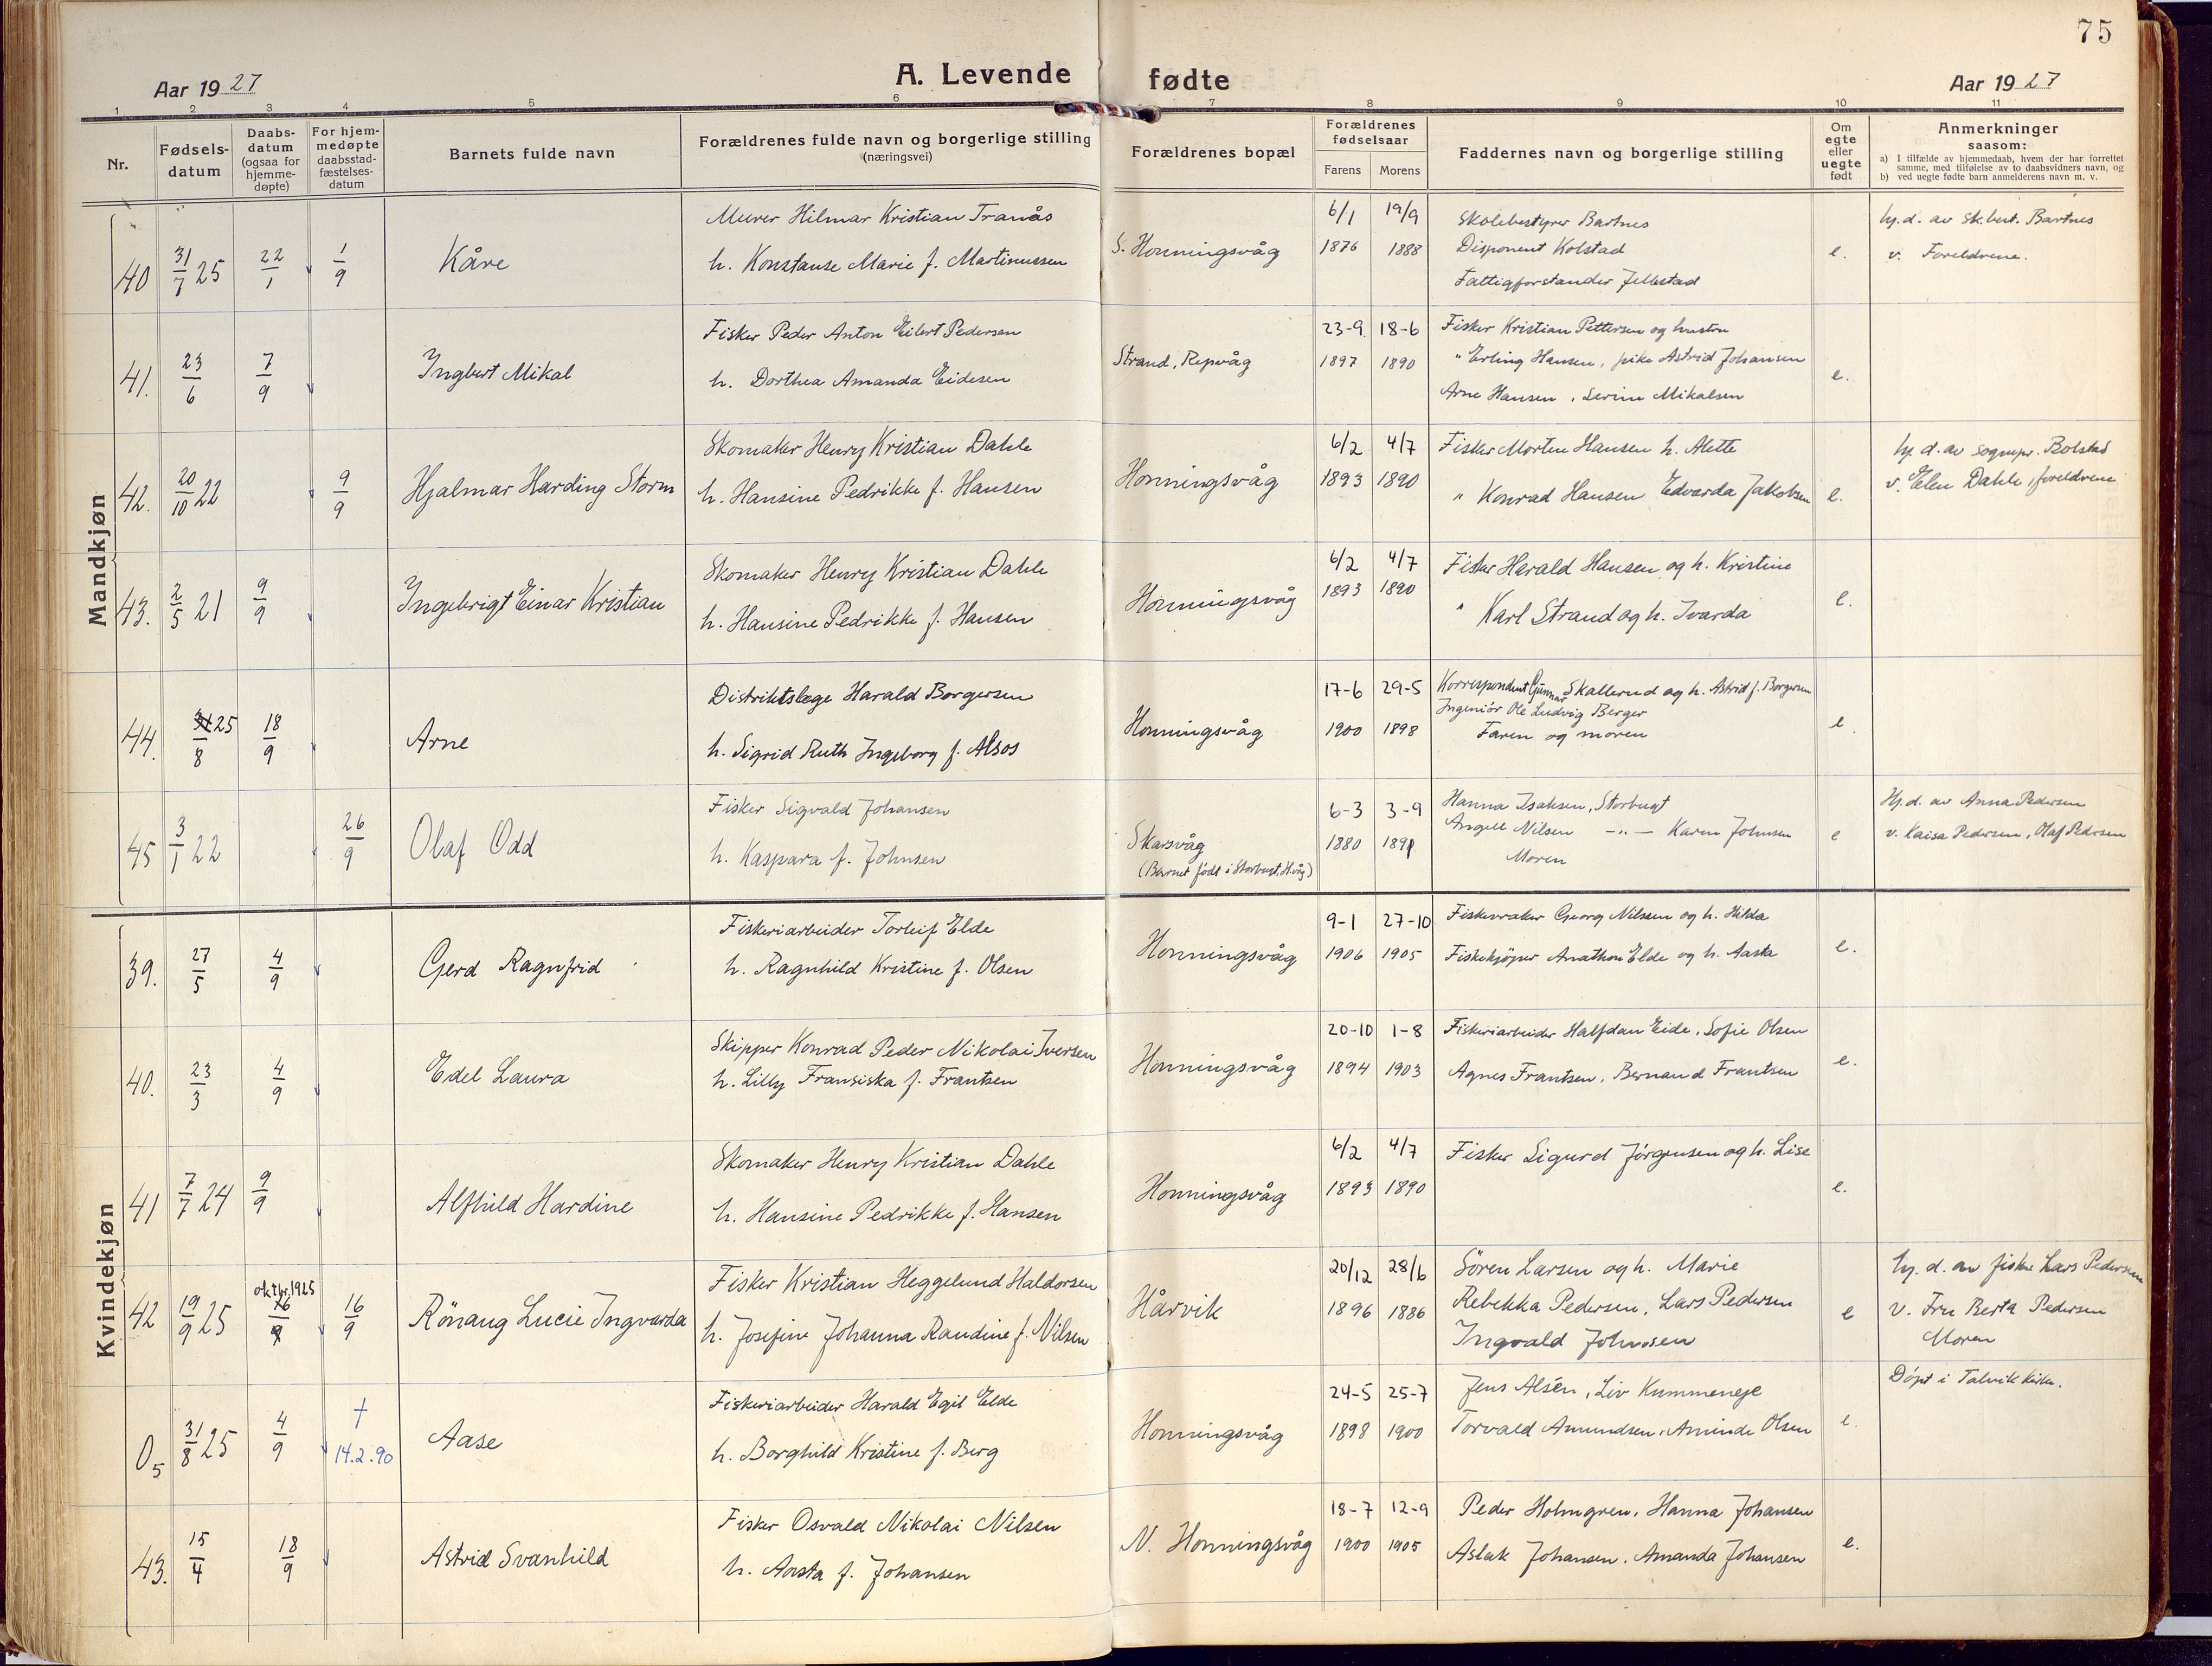 75
Aar 1927
A. Levende fødte
Aar 1927
1 2 3 4 5 6 7 8 9 10 11
Nr.
Fødsels-
datum
Daabs-
datum
(ogsaa for
hjemme-
døpte)
For hjem-
medøpte
daabsstad-
fæstelses-
datum
Barnets fulde navn
Forældrenes fulde navn og borgerlige stilling
(næringsvei)
Forældrenes bopæl
Forældrenes
fødselsaar
Farens Morens
Faddernes navn og borgerlige stilling
Om
egte
eller
uegte
født
Anmerkninger
saasom:
a) I tilfælde av hjemmedaab, hvem der har forrettet
samme, med tilføielse av to daabsvidners navn, og
b) ved uegte fødte barn anmelderens navn m. v.
Mandkjøn
40 31/7 25 22/1 1/9 Kåre
Murer Hilmar Kristian Tranås
h. Konstanse Marie f. Martinussen
S. Honningsvåg
6/1 1876 19/9 1888
Skolebestyrer Bartnes
Disponent Kolstad
Fattigforstander Jellestad
e.
hj.d. av sk.best. Bartnes
v. Foreldrene.
41. 23/6 7/9 Ingbert Mikal
Fisker Peder Anton Eilert Pedersen
h. Dorthea Amanda Eidesen
Strand, Repvåg
23-9 1897 18-6 1890
Fisker Kristian Pettersen og hustru
" Erling Hansen, pike Astrid Johansen
Arne Hansen, Serine Mikalsen
e.
42. 20/10 22 9/9 Hjalmar Harding Storm
Skomaker Henry Kristian Dahle
h. Hansine Pedrikke f. Hansen
Honningsvåg
6/2 1893 4/7 1890
Fisker Morten Hansen h. Alette
" Konrad Hansen Edvarda Jakobsen
e.
hj. d. av sognepr. Bolstad
v. Elen Dahle, foreldrene
43. 2/5 21 9/9 Ingebrigt Einar Kristian
Skomaker Henry Kristian Dahle
h. Hansine Pedrikke f. Hansen
Honningsvåg
6/2 1893 4/7 1890
Fisker Harald Hansen og h. Kristine
" Karl Strand og h. Ivarda
e.
44. 25/8 18/9 Arne
Distriktslege Harald Borgersen
h. Sigrid Ruth Ingeborg f. Alsos
Honningsvåg
17-6 1900 29-5 1898
Korrespondent Gunnar Skallerud og h. Astrid f. Borgersen
Ingeniör Ole Ludvig Berger
Faren og moren
e.
45 3/1 22 26/9 Olaf Odd
Fisker Sigvald Johansen
h. Kaspara f. Johnsen
Skarsvåg
(Barnet födt i Storbugt, H.våg)
6-3 1880 3-9 1891
Hanna Isaksen, Storbugt
Angell Nilsen —"— Karen Johnsen
Moren
e
Hj.d. av Anna Pedersen
v. Kaisa Pedersen, Olaf Pedersen
Kvindekjøn
39. 27/5 4/9 Gerd Ragnfrid
Fiskeriarbeider Torleif Elde
h. Ragnhild Kristine f. Olsen
Honningsvåg
9-1 1906 27-10 1905
Fiskevraker Georg Nilssen og h. Hilda
Fiskekjöper Anathon Elde og h. Aasta
e.
40. 23/3 4/9 Edel Laura
Skipper Konrad Peder Nikolai Iversen
h. Lilly Fransiska f. Frantsen
Honningsvåg
20-10 1894 1-8 1903
Fiskeriarbeider Halfdan Eide, Sofie Olsen
Agnes Frantsen, Bernand Frantsen
e.
41 7/7 24 9/9 Alfhild Hardine
Skomaker Henry Kristian Dahle
h. Hansine Pedrikke f. Hansen
Honningsvåg
6/2 1893 4/7 1890
Fisker Sigurd Jörgensen og h. Lise
e.
42 19/9 25 oktbr. 1925 16/9 16/9 Rönaug Lucie Ingvarda
Fisker Kristian Heggelund Haldorsen
h. Josefine Johanna Randine f. Nilsen
Hårvik
20/12 1896 28/6 1886
Sören Larsen og h. Marie
Rebekka Pedersen, Lars Pedersen
Ingvald Johnsen
e
hj. d. av fisker Lars Pedersen
v. Fru Berta Pedersen
Moren
05 31/8 25 4/9 † 14.2.90 Aase
Fiskeriarbeider Harald Egil Elde
h. Borghild Kristine f. Berg
Honningsvåg
24-5 1898 25-7 1900
Jens Alsén, Liv Kummeneje
Torvald Amundsen, Aminda Olsen
e.
Döpt i Talvik kirke.
43. 15/4 18/9 Astrid Svanhild
Fisker Osvald Nikolai Nilsen
h. Aasta f. Johansen
N. Honningsvåg
18-7 1900 12-9 1905
Peder Holmgren, Hanna Johansen
Aslak Johansen, Amanda Johansen
e.